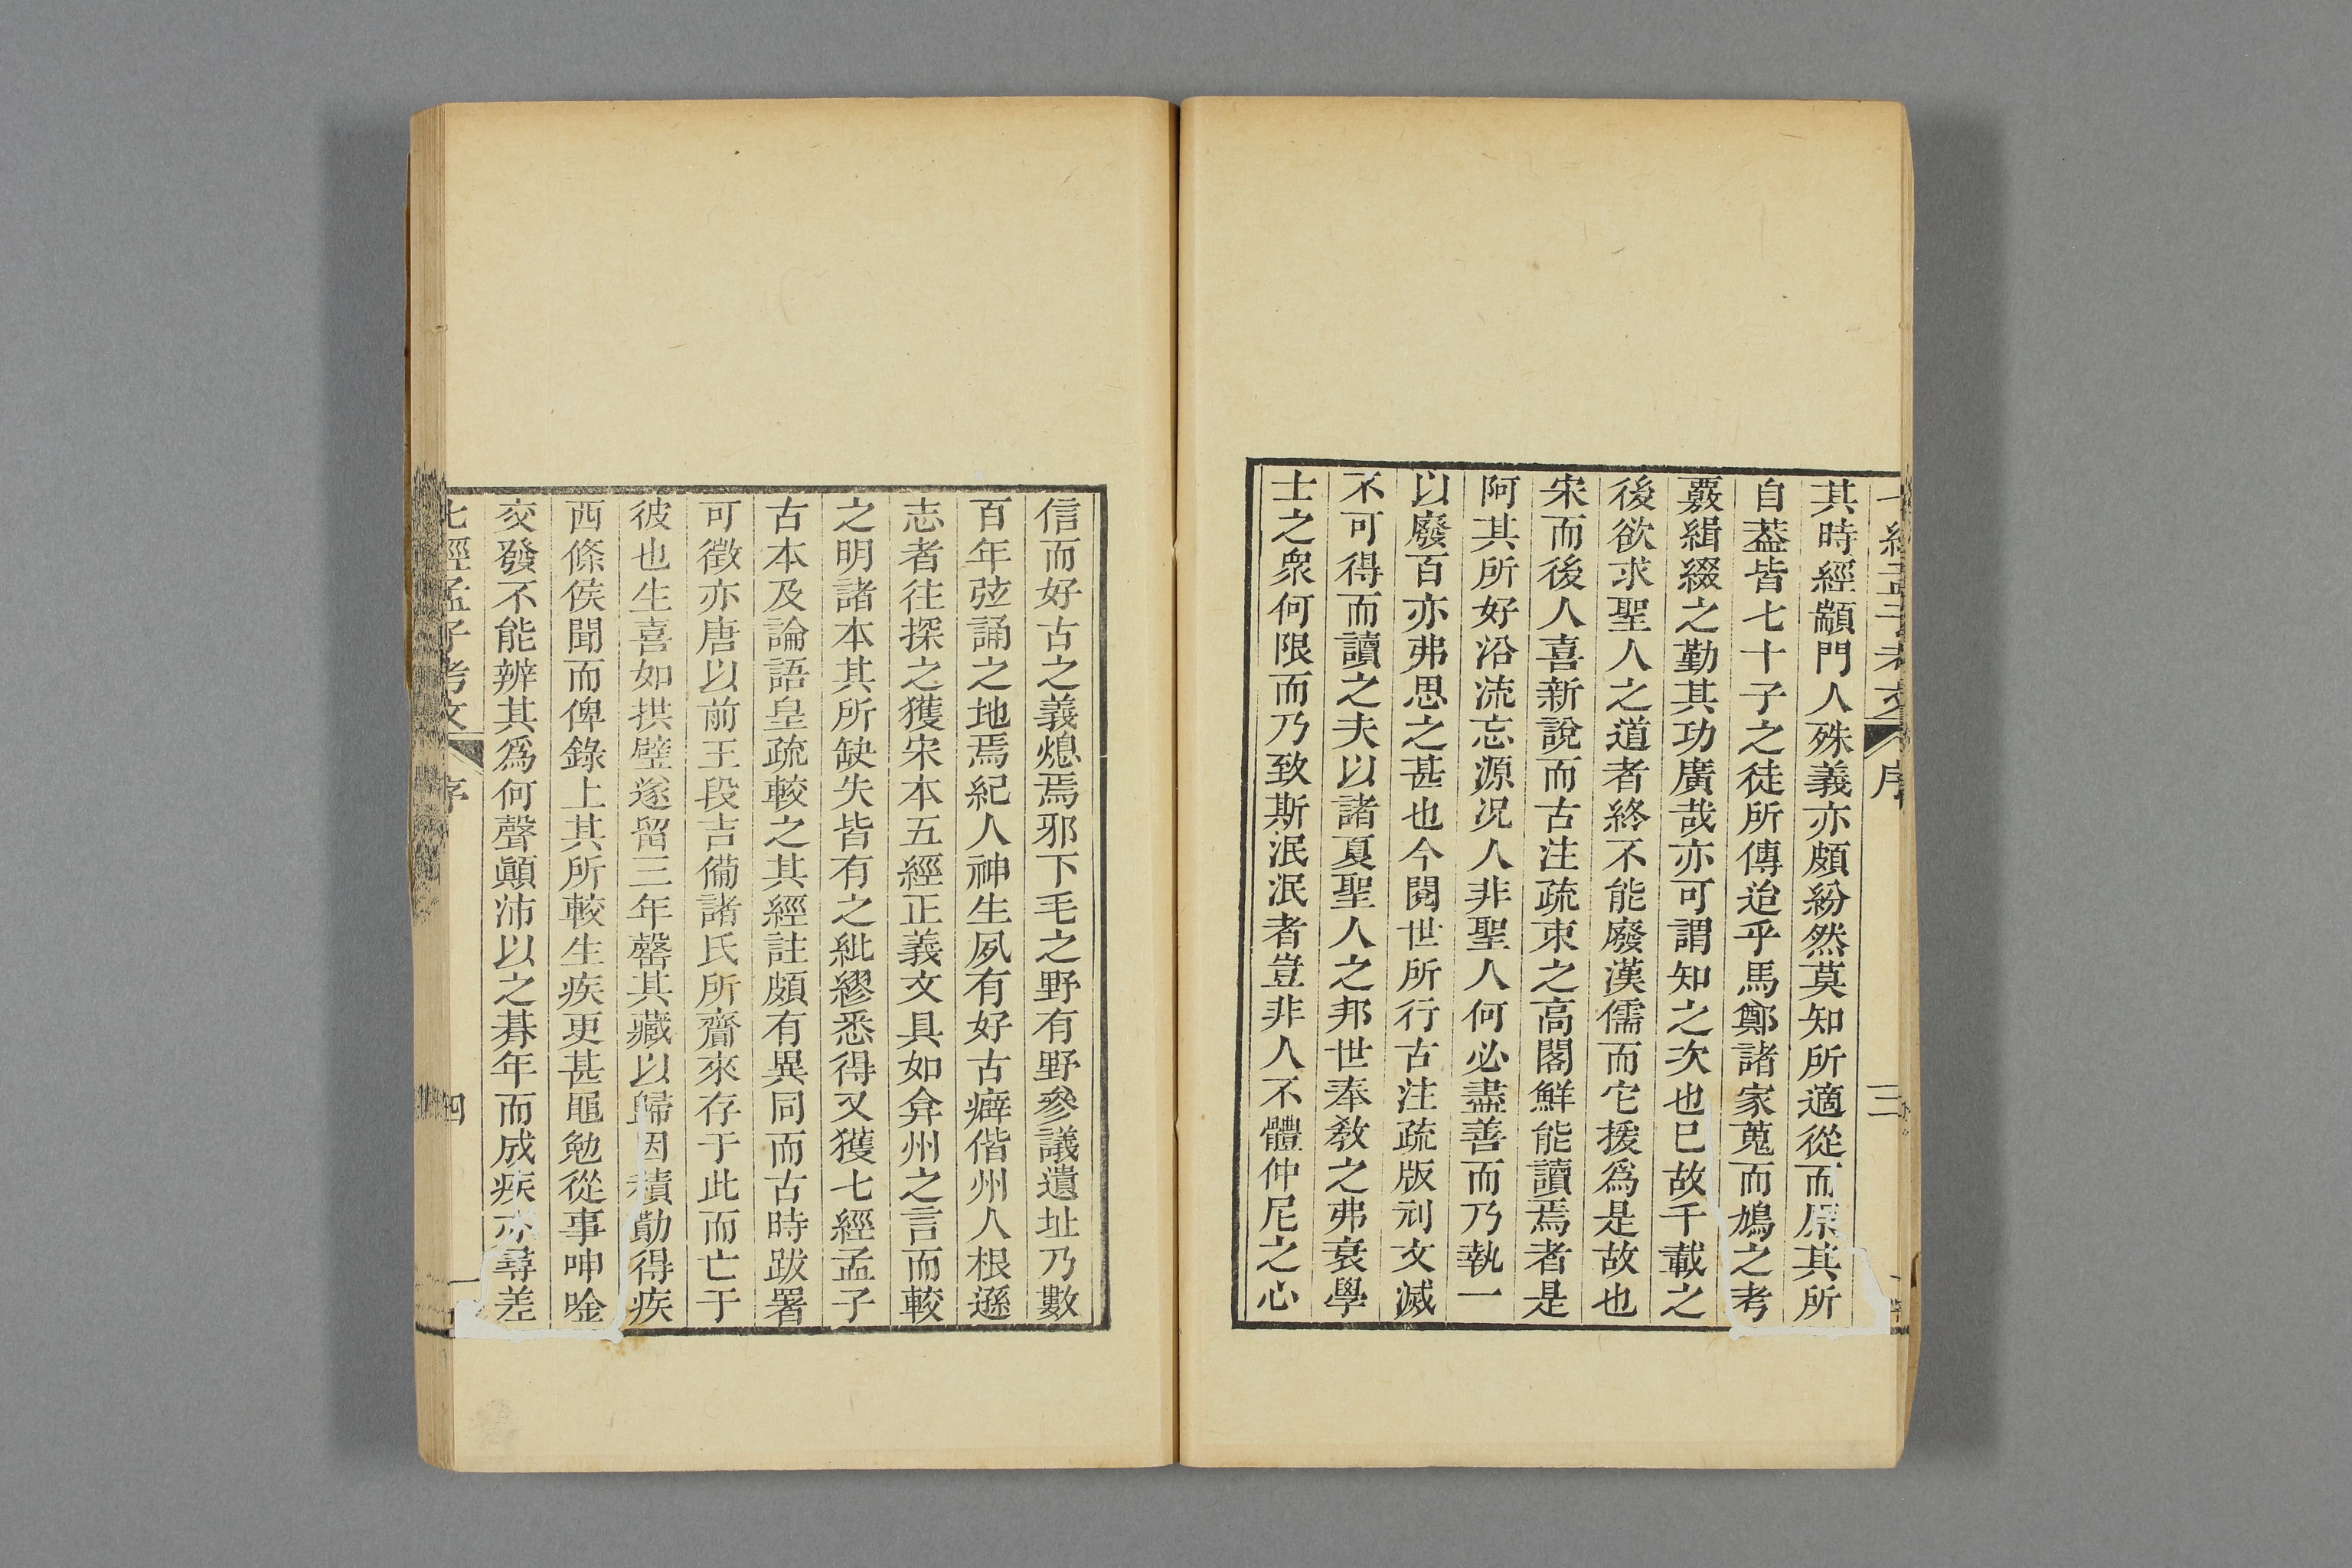 七經孟子考文 序 三
其時經顓門人殊義亦頗紛然莫知所適從而原其所
自葢皆七十子之徒所傳迨乎馬鄭諸家蒐而鳩之考
覈緝綴之勤其功廣哉亦可謂知之次也已故千載之
後欲求聖人之道者終不能廢漢儒而它援爲是故也
宋而後人喜新說而古注疏束之高閣鮮能讀焉者是
阿其所好沿流忘源况人非聖人何必盡善而乃執一
以廢百亦弗思之甚也今閱世所行古注疏版刓文滅
不可得而讀之夫以諸夏聖人之邦世奉敎之弗衰學
士之衆何限而乃致斯泯泯者豈非人不體仲尼之心
信而好古之義熄焉邪下毛之野有野參議遺址乃數
百年弦誦之地焉紀人神生夙有好古癖偕州人根遜
志者往探之獲宋本五經正義文具如弇州之言而較
之明諸本其所缺失皆有之紕繆悉得又獲七經孟子
古本及論語皇疏較之其經註頗有異同而古時跋署
可徵亦唐以前王段吉備諸氏所齎來存于此而亡于
彼也生喜如拱璧遂留三年罄其藏以歸因積勩得疾
西條侯聞而俾錄上其所較生疾更甚黽勉從事呻唫
交發不能辨其爲何聲顚沛以之朞年而成疾亦尋差
七經孟子考文 序 四